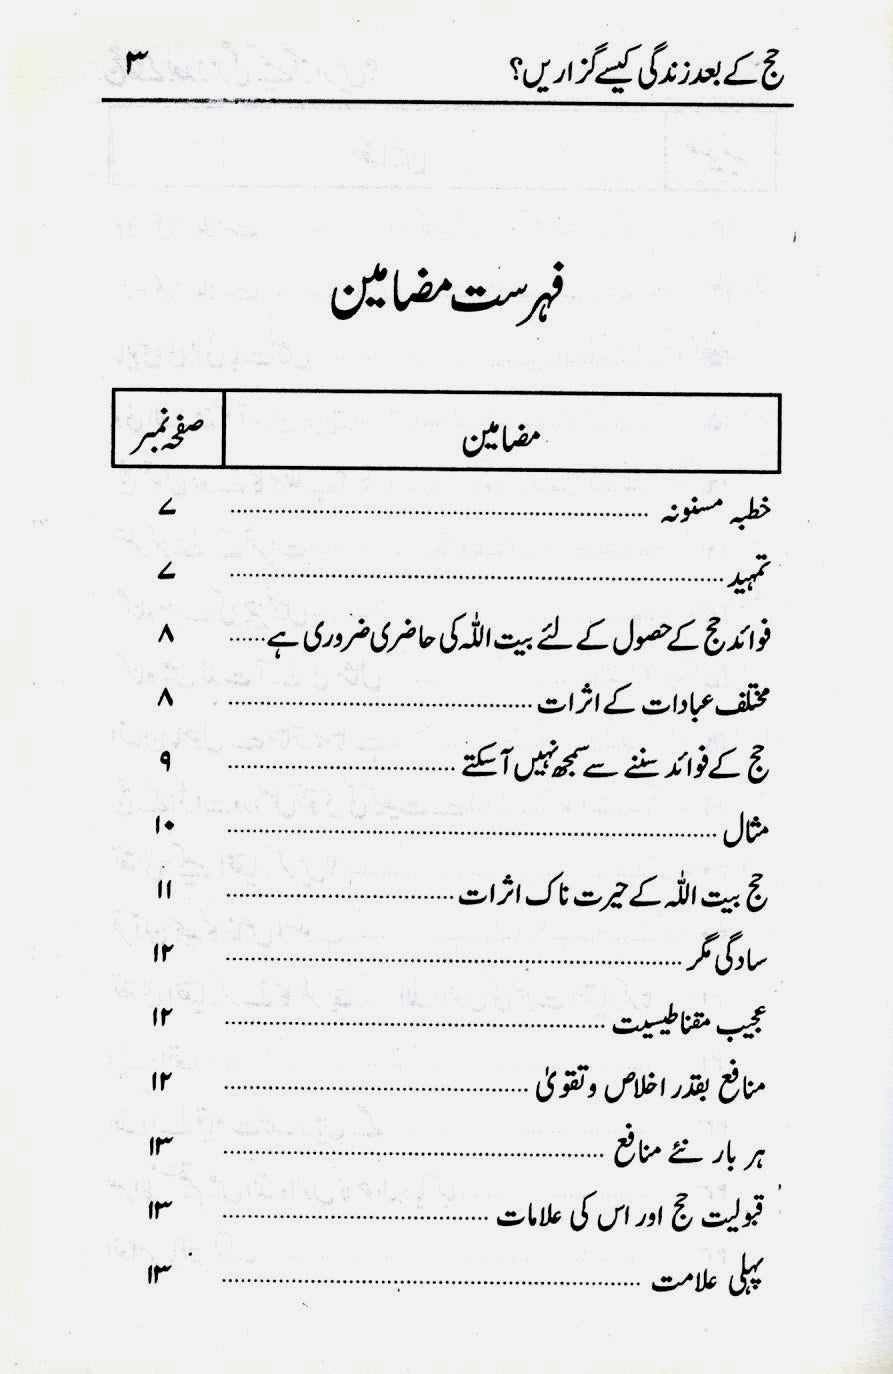 حج کے بعد زندگی کیسے گزاریں؟ ۳
فہرست مضامین
مضامین صفحہ نمبر
خطبہ مسنونہ ........ ۷
تمہید ........ ۷
فوائد حج کے حصول کے لئے بیت اللہ کی حاضری ضروری ہے ...... ۸
مختلف عبادات کے اثرات ........ ۸
حج کے فوائد سننے سے سمجھ نہیں آسکتے ........ ۹
مثال ........ ۱۰
حج بیت اللہ کے حیرت ناک اثرات ........ ۱۱
سادگی مگر ........ ۱۲
عجیب مقناطیسیت ........ ۱۲
منافع بقدر اخلاص و تقویٰ ........ ۱۲
ہر بار نئے منافع ........ ۱۳
قبولیت حج اور اس کی علامات ........ ۱۳
پہلی علامت ........ ۱۳